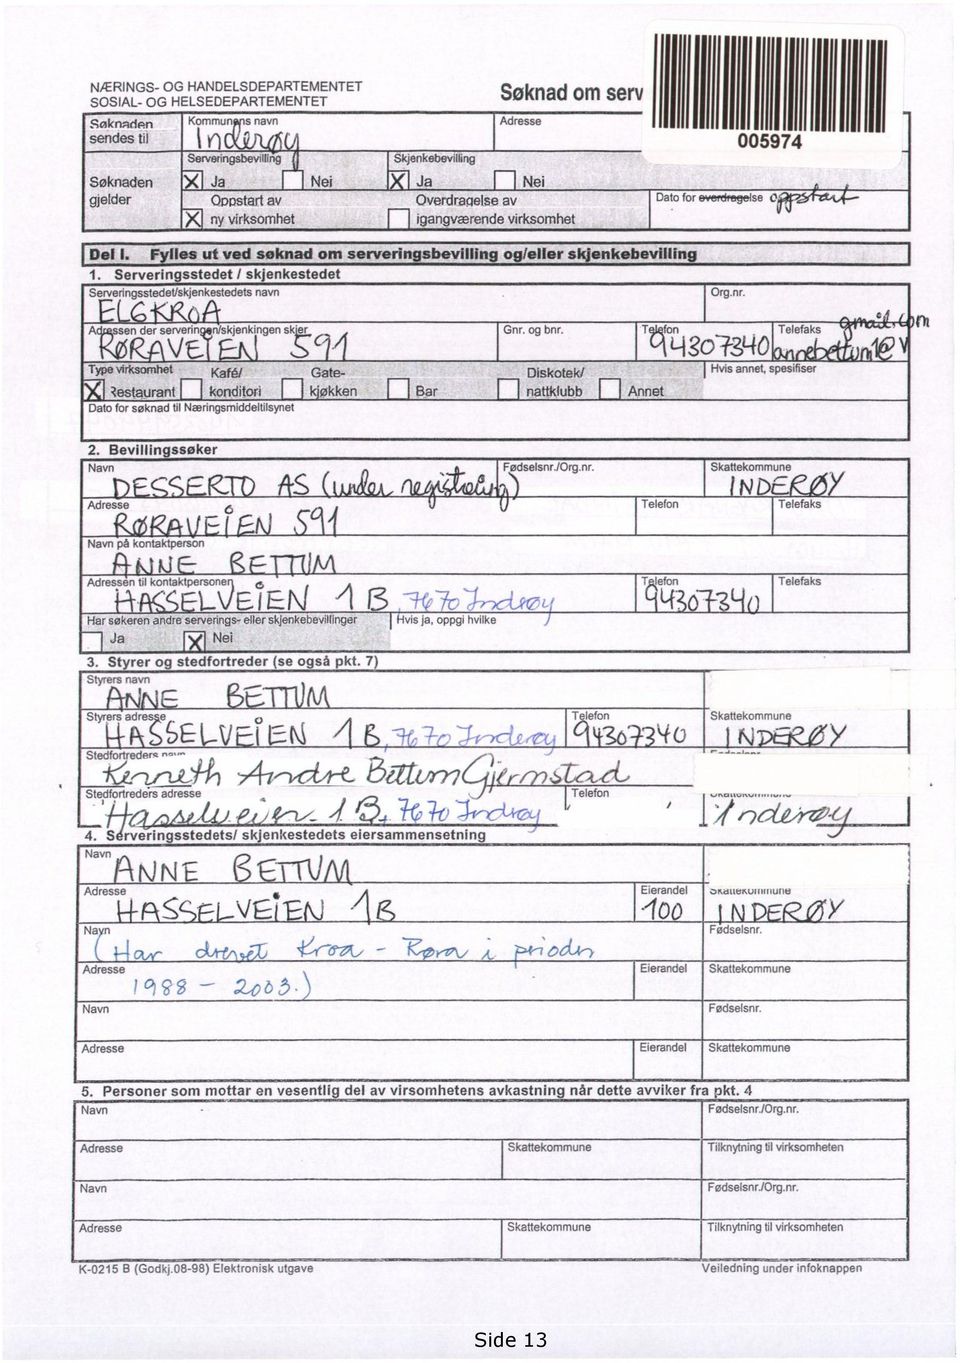 NÆRINGS- OG HANDELSDEPARTEMENTET
SOSIAL- OG HELSEDEPARTEMENTET
Søknad om serv
005974
Søknaden sendes til
Kommunens navn
Inderøy
Adresse
Søknaden gjelder
Serveringsbevilling
X Ja Nei
Skjenkebevilling
X Ja Nei
X Oppstart av ny virksomhet
Overdragelse av igangværende virksomhet
Dato for overdragelse oppstart
Del I. Fylles ut ved søknad om serveringsbevilling og/eller skjenkebevilling
1. Serveringsstedet / skjenkestedet
Serveringsstedet/skjenkestedets navn
ELGKROA
Org.nr.
Adressen der serveringen/skjenkingen skjer
RØRAVEIEN 591
Gnr. og bnr.
Telefon
94307340
Telefaks
annebettum1@
gmail.com
Type virksomhet
X Restaurant
Kafé/ konditori
Gate- kjøkken
Bar
Diskotek/ nattklubb
Annet
Hvis annet, spesifiser
Dato for søknad til Næringsmiddeltilsynet
2. Bevillingssøker
Navn
DESSERTO AS (under registrering)
Fødselsnr./Org.nr.
Skattekommune
INDERØY
Adresse
RØRAVEIEN 591
Telefon
Telefaks
Navn på kontaktperson
ANNE BETTUM
Adressen til kontaktpersonen
HASSELVEIEN 1B, 7670 Inderøy
Telefon
94307340
Telefaks
Har søkeren andre serverings- eller skjenkebevillinger
Ja X Nei
Hvis ja, oppgi hvilke
3. Styrer og stedfortreder (se også pkt. 7)
Styrers navn
ANNE BETTUM
Styrers adresse
HASSELVEIEN 1B, 7670 Inderøy
Telefon
94307340
Skattekommune
INDERØY
Stedfortreders navn
Kenneth Andre Bettum Gjermstad
Stedfortreders adresse
Hasselveien 1B, 7670 Inderøy
Telefon
Inderøy
4. Serveringsstedets/ skjenkestedets eiersammensetning
Navn
ANNE BETTUM
Adresse
HASSELVEIEN 1B
Eierandel
100
Skattekommune
INDERØY
Navn
(Har drevet Kroa - Røra i perioden
Fødselsnr.
Adresse
1988 - 2003.)
Eierandel
Skattekommune
Navn
Fødselsnr.
Adresse
Eierandel
Skattekommune
5. Personer som mottar en vesentlig del av virsomhetens avkastning når dette avviker fra pkt. 4
Navn
Fødselsnr./Org.nr.
Adresse
Skattekommune
Tilknytning til virksomheten
Navn
Fødselsnr./Org.nr.
Adresse
Skattekommune
Tilknytning til virksomheten
K-0215 B (Godkj.08-98) Elektronisk utgave
Veiledning under infoknappen
Side 13